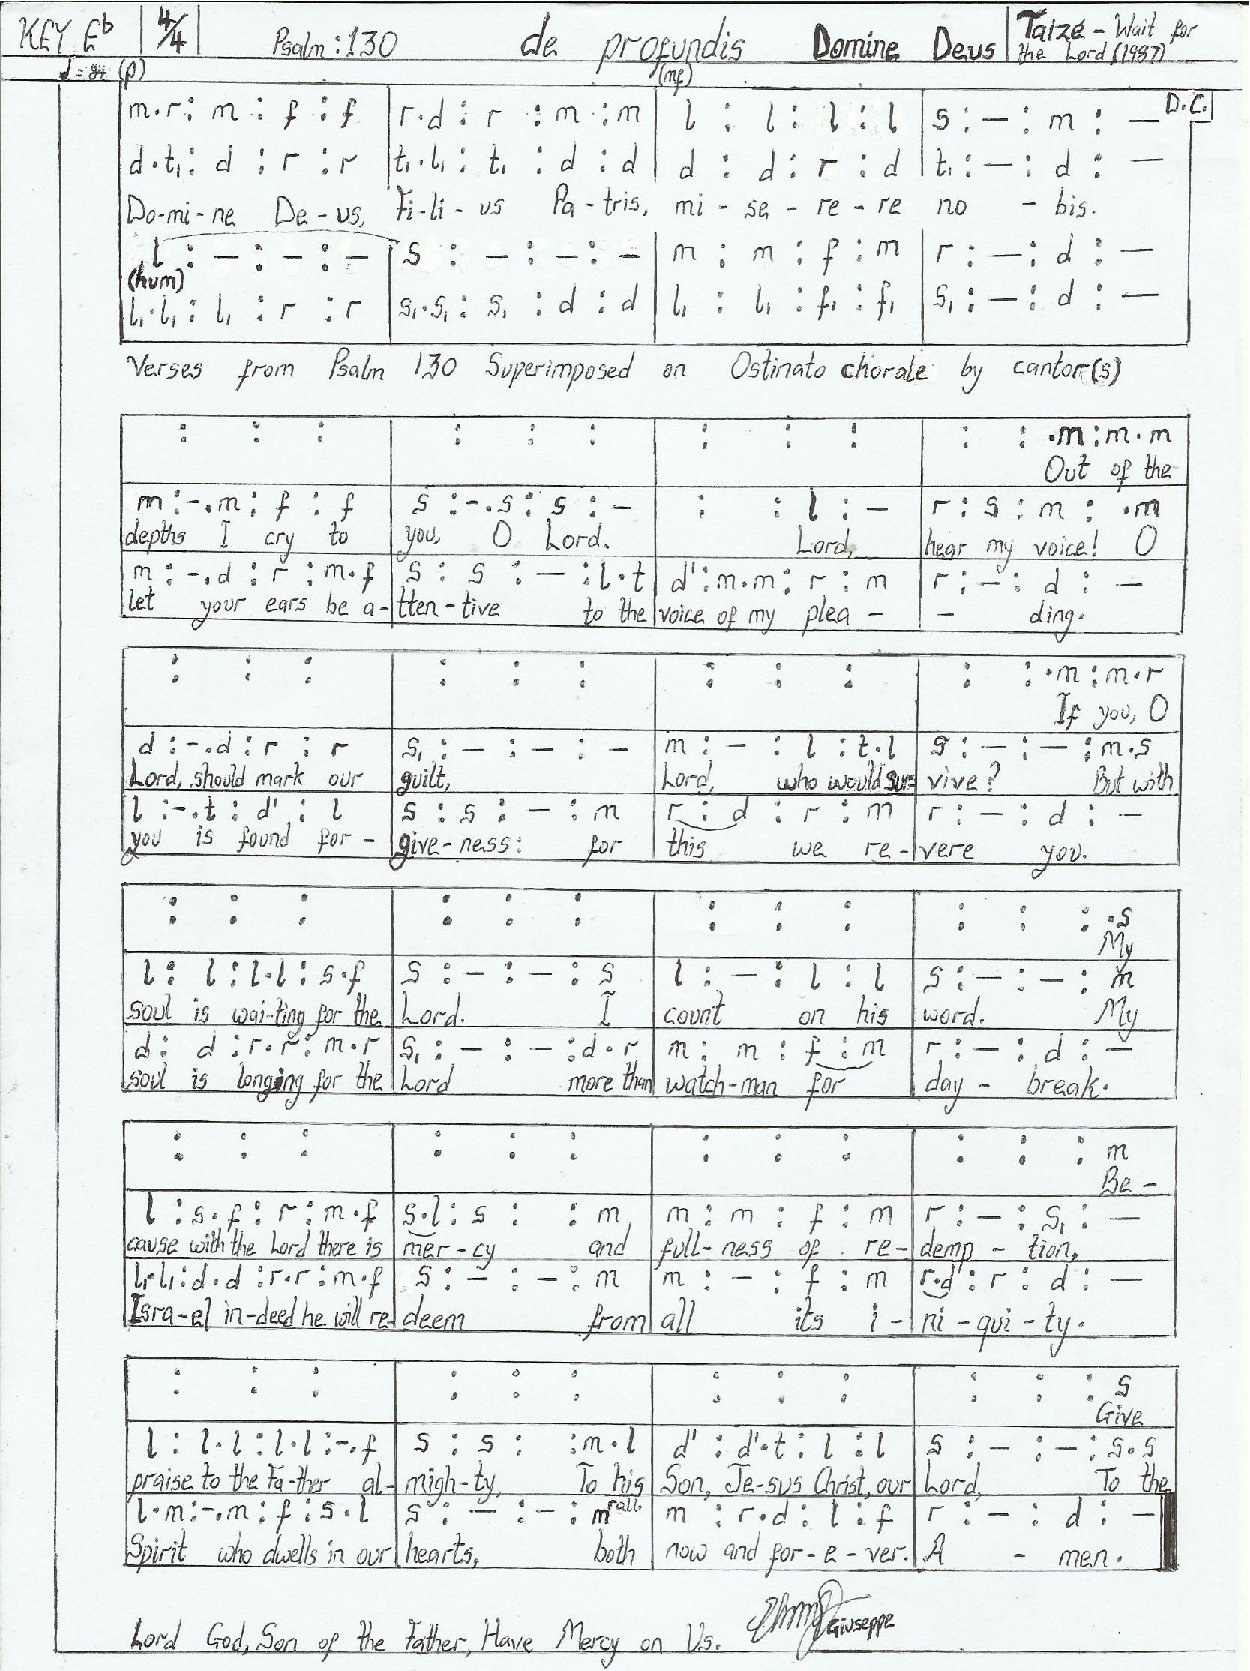 KEY Eb 4/4 Psalm:130 de profundis Domine Deus Taizé - Wait for
the Lord (1987)
(p) (mf)
D.C.
m.r : m : f : f | r.d : r : m : m | l : l : l : l | s : — : m : —
d.t₁ : d : r : r | t₁.l₁ : t₁ : d : d | d : d : r : d | t₁ : — : d : —
Do-mi-ne De-us, Fi-li-us Pa-tris, mi-se-re-re no - bis.
l : — : — : — | s : — : — : — | m : m : f : m | r : — : d : —
(hum)
l₁.l₁ : l₁ : r : r | s₁.s₁ : s₁ : d : d | l₁ : l₁ : f₁ : f₁ | s₁ : — : d : —
Verses from Psalm 130 Superimposed on Ostinato chorale by cantor(s)
: : : | : : : | : : : | : : .m : m.m
Out of the
m : -.m : f : f | s : -.s : s : — | : : l : — | r : s : m : .m
depths I cry to you, O Lord. Lord, hear my voice! O
m : -.d : r : m.f | s : s : — : l.t | d' : m.m : r : m | r : — : d : —
let your ears be a-tten-tive to the voice of my plea - - ding.
: : : | : : : | : : : | : : .m : m.r
If you, O
d : -.d : r : r | s₁ : — : — : — | m : — : l : t.l | s : — : — : m.s
Lord, should mark our guilt, Lord, who would sur-vive? But with
l : -.t : d' : l | s : s : — : m | r : d : r : m | r : — : d : —
you is found for-give-ness: for this we re-vere you.
: : : | : : : | : : : | : : : .s
My
l : l : l.l : s.f | s : — : — : s | l : — : l : l | s : — : — : m
soul is wai-ting for the Lord. I count on his word. My
d : d : r.r : m.r | s₁ : — : — : d.r | m : m : f : m | r : — : d : —
soul is longing for the Lord more than watch-man for day - break.
: : : | : : : | : : : | : : : m
Be -
l : s.f : r : m.f | s.l : s : : m | m : m : f : m | r : — : s₁ : —
cause with the Lord there is mer-cy and full-ness of re-demp - tion,
l₁.l₁ : d.d : r.r : m.f | s : — : — : m | m : — : f : m | r.d : r : d : —
Isra-el in-deed he will re deem from all its i - ni - qui - ty.
: : : | : : : | : : : | : : : s
Give
l : l.l : l.l : -.f | s : s : : m.l | d' : d'.t : l : l | s : — : — : s.s
praise to the Fa-ther al-migh-ty, To his Son, Je-sus Christ, our Lord, To the
l.m : -.m : f : s.l | s : — : — : m rall. | m : r.d : l : f | r : — : d : —
Spirit who dwells in our hearts, both now and for-e-ver. A - men.
Lord God, Son of the Father, Have Mercy on Us. Giuseppe